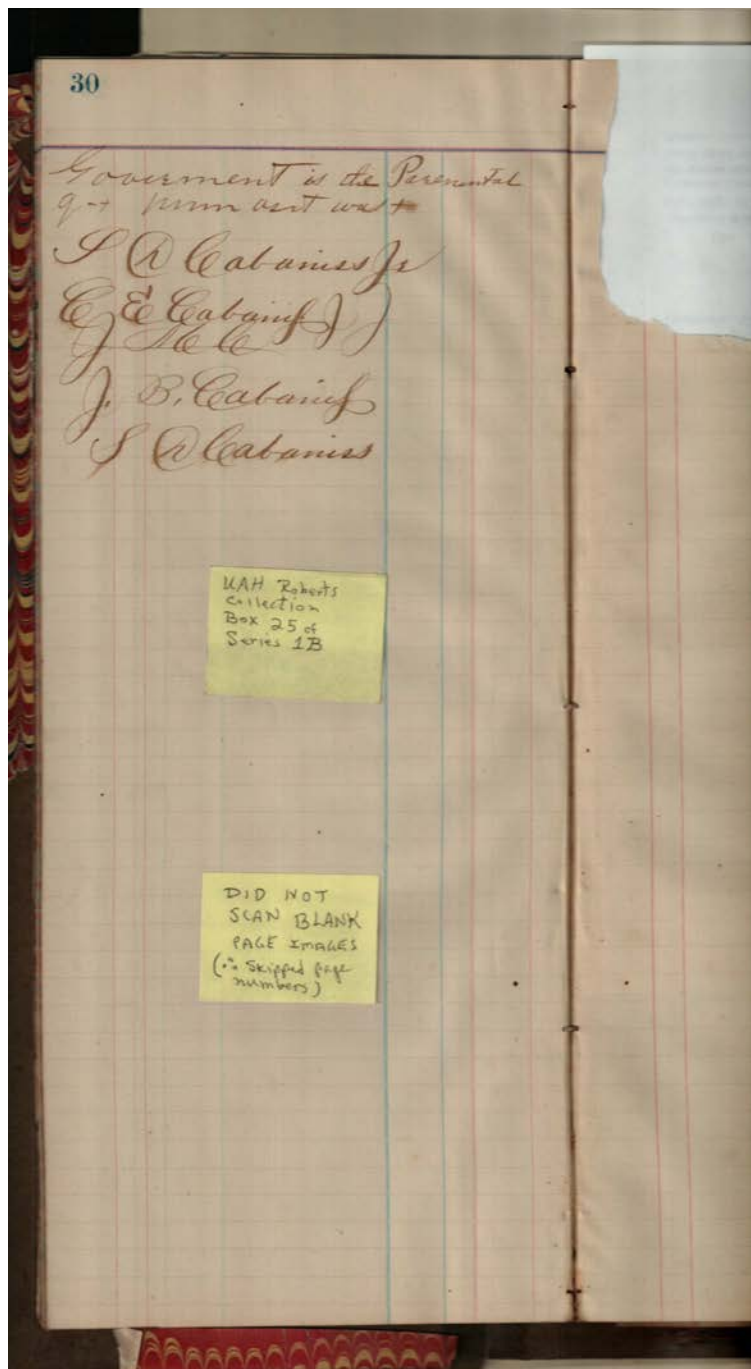 30
Government is the
S D Cabaniss Jr
C E Cabaniss
J. B. Cabaniss
S D Cabaniss
UAH Roberts
Collection
Box 25 of
Series 1B
DID NOT
SCAN BLANK
PAGE IMAGES
(∴ Skipped page
numbers)